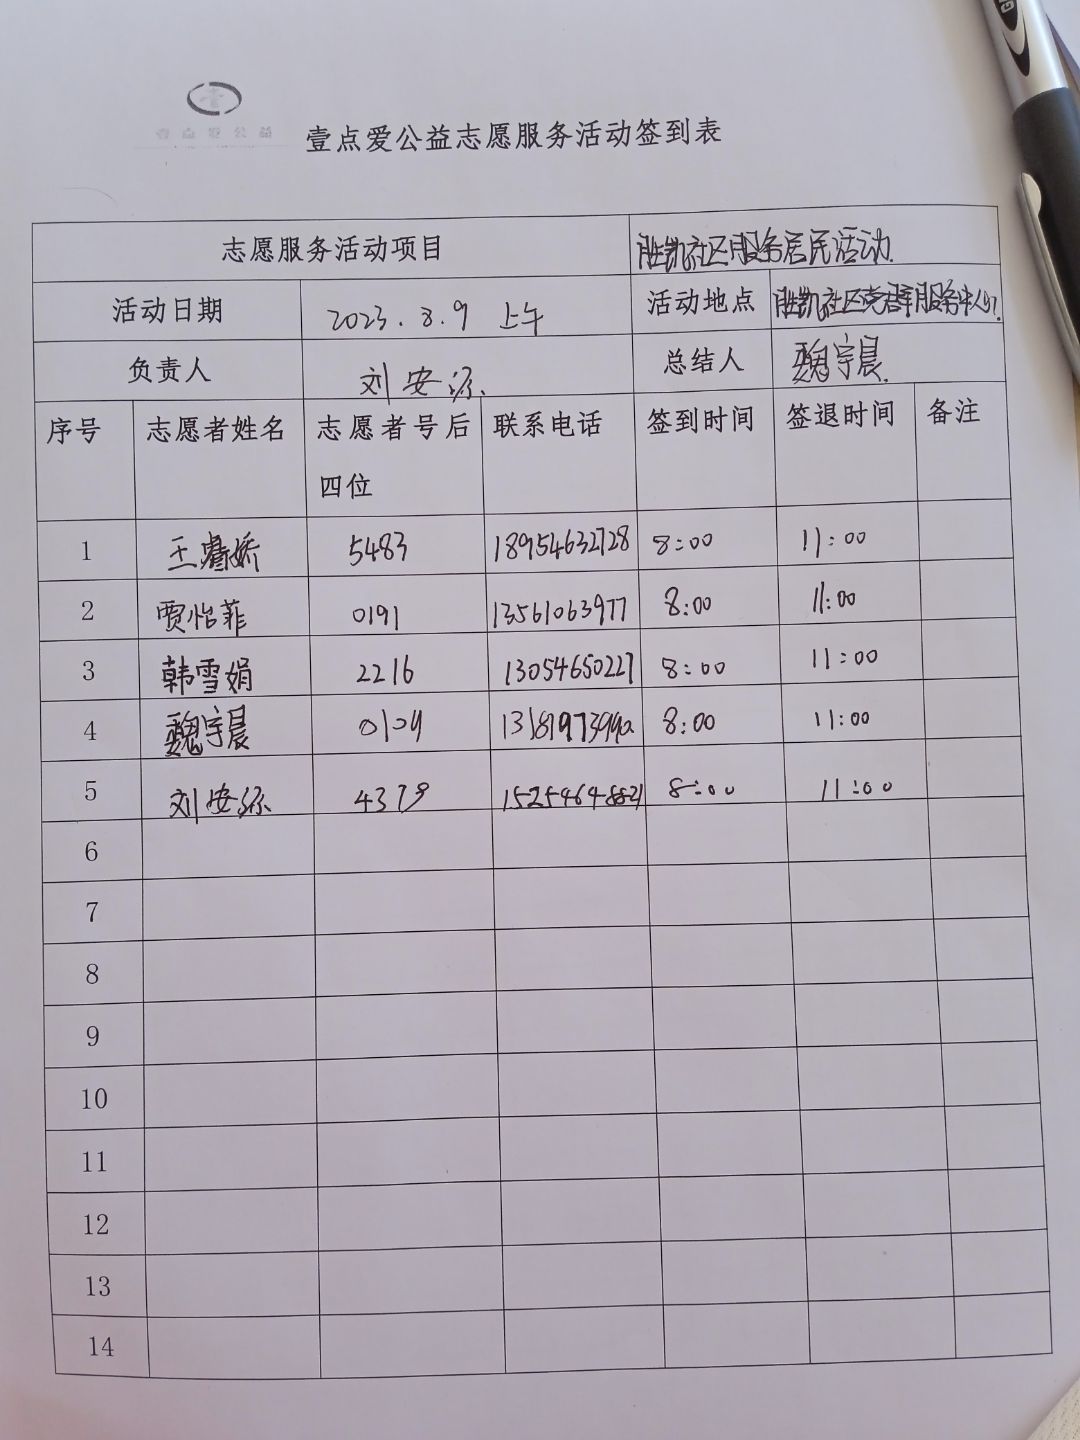 壹点爱公益
壹点爱公益志愿服务活动签到表
志愿服务活动项目 胜凯社区服务居民活动
活动日期 2023.8.9 上午 活动地点 胜凯社区党群服务中心
负责人 刘安源 总结人 魏宇晨
序号 志愿者姓名 志愿者号后四位 联系电话 签到时间 签退时间 备注
1 王睿娇 5483 18954632728 8:00 11:00
2 贾怡菲 0191 13561063977 8:00 11:00
3 韩雪娟 2216 13054650227 8:00 11:00
4 魏宇晨 8:00 11:00
5 刘安源 4379 8:00 11:00
6
7
8
9
10
11
12
13
14